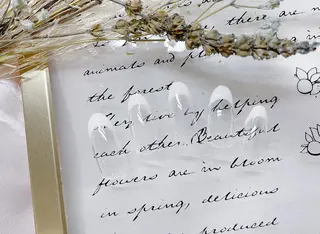 there are m
animals and pla
the forest.
They live by helping
each other. Beautiful
flowers are in bloom
in spring, delicious
produced